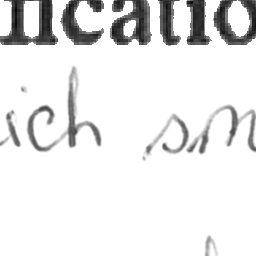 ficatio
ich sm